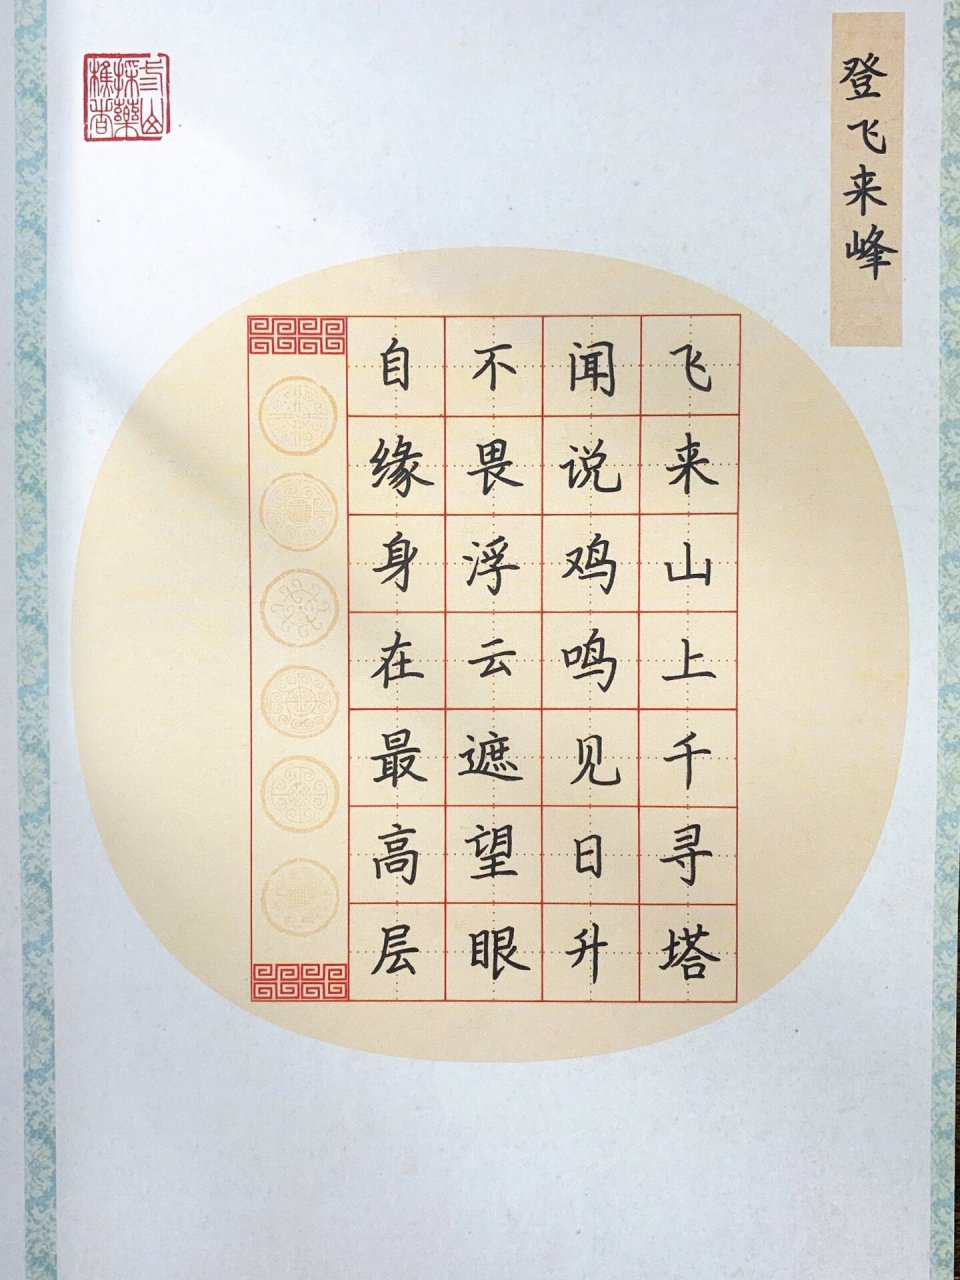 登飞来峰
飞来山上千寻塔
闻说鸡鸣见日升
不畏浮云遮望眼
自缘身在最高层